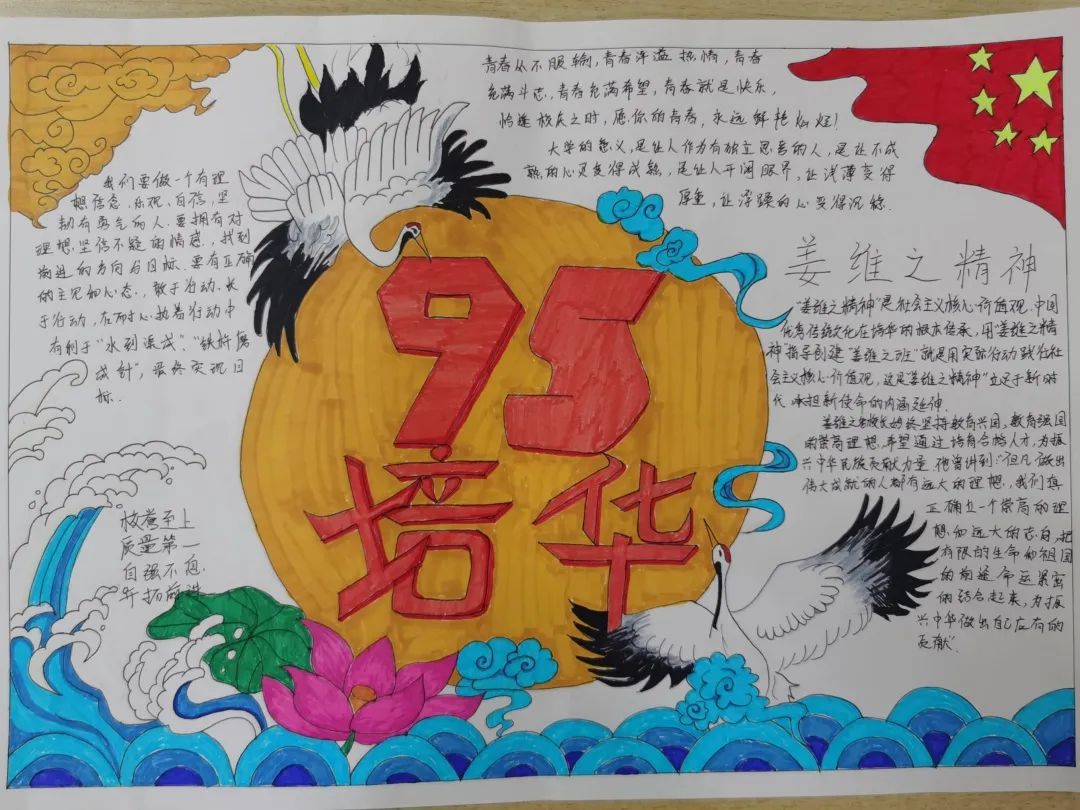 青春从不服输,青春洋溢热情,青春
充满斗志,青春充满希望,青春就是快乐,
恰逢校庆之时,愿你的青春,永远鲜艳灿烂!
大学的意义,是让人作为有独立思想的人,是让不成
熟的心灵变得成熟,是让人开阔眼界,让浅薄变得
厚重,让浮躁的心变得沉稳.
我们要做一个有理
想信念、乐观、自信、坚
韧有勇气的人.要拥有对
理想坚信不疑的情感,找到
前进的方向与目标.要有正确
的主见和心态,敢于行动、长
于行动,在耐心执着行动中
有利于"水到渠成"、"铁杵磨
成针",最终实现目
标.
95
培华
校誉至上
质量第一
自强不息
开拓前进
姜维之精神
"姜维之精神"是社会主义核心价值观.中国
优秀传统文化在培华的根本传承,用"姜维之精
神"指导创建"姜维之班"就是用实际行动践行社
会主义核心价值观,这是"姜维之精神"立足于新时
代,承担新使命的内涵延伸.
姜维之老校长始终坚持教育兴国,教育强国
的崇高理想,希望通过培育合格人才,为振
兴中华民族贡献力量.他曾讲到:"但凡做出
伟大成就的人都有远大的理想,我们应
正确立一个崇高的理
想和远大的志向,把
有限的生命和祖国
的前途命运紧密
的结合起来,为振
兴中华做出自己应有的
贡献".